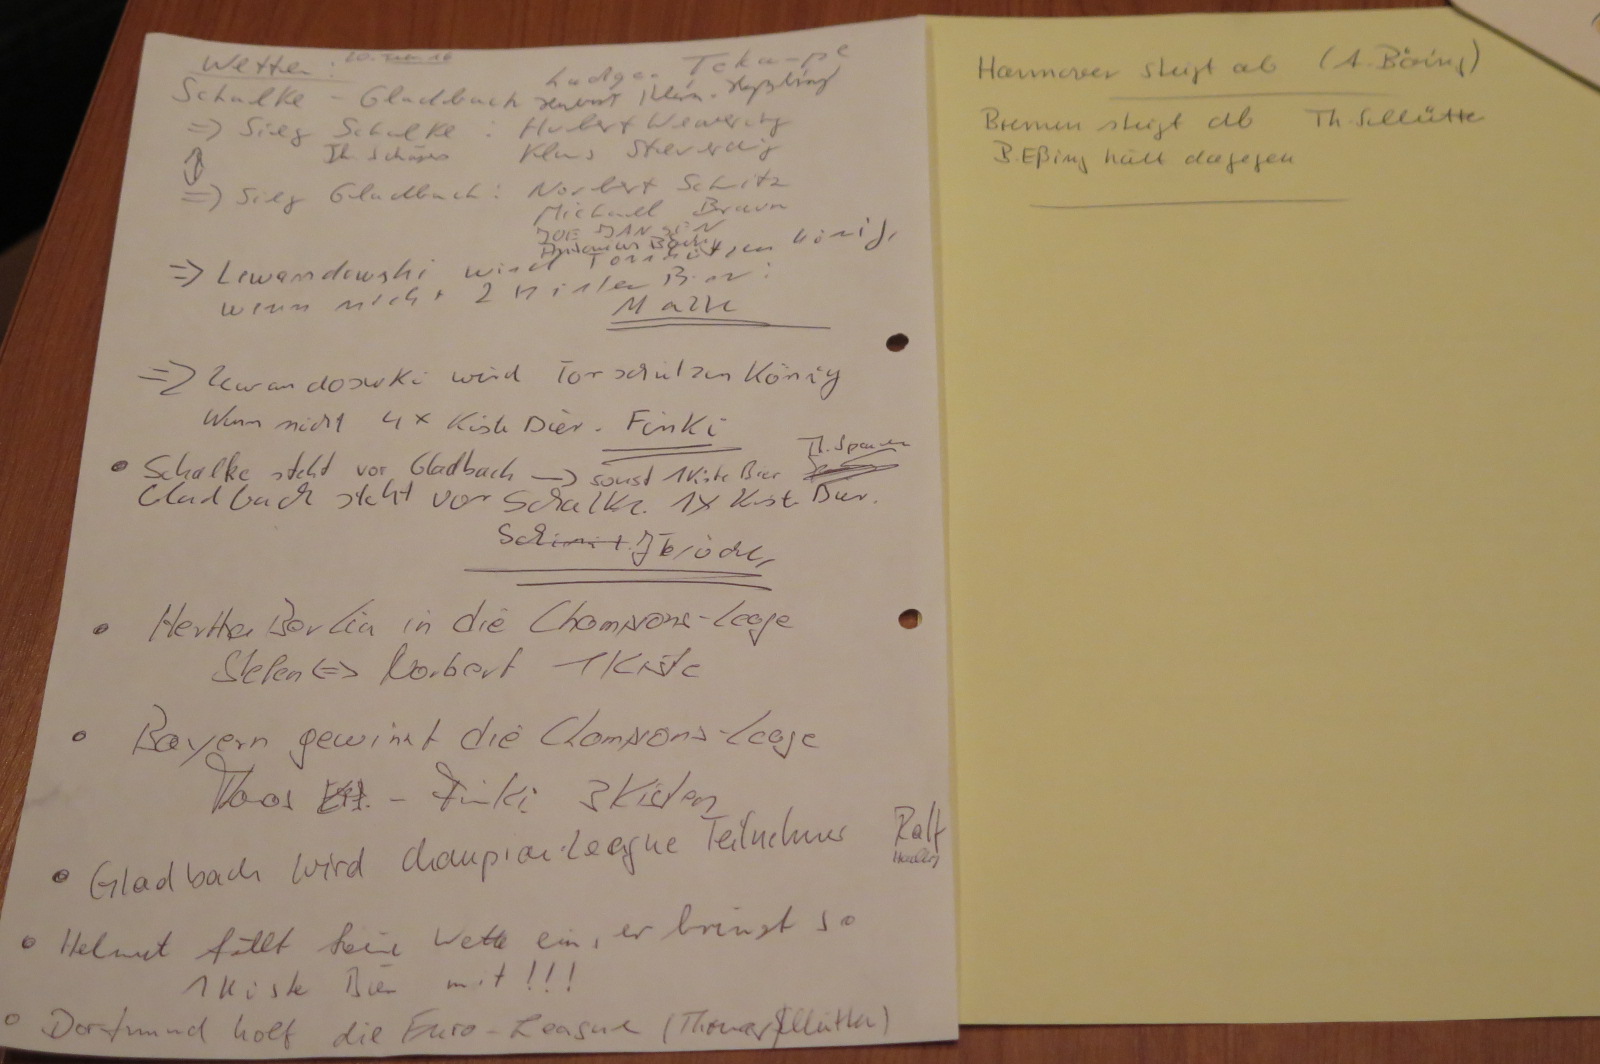 Wetten:
Schalke - Gladbach
=> Sieg Schalke: Hubert
Klaus
=> Sieg Gladbach: Norbert Schitz
Michael Braun
JOE JANSEN
=> Lewandowski wird Torschützenkönig,
wenn nicht 2 Kisten Bier:
=> Lewandoswki wird Torschützen König
Wenn nicht 4x Kiste Bier. Finki
• Schalke steht vor Gladbach -> sonst 1 Kiste Bier
Gladbach steht vor Schalke. 1x Kiste Bier.
• Hertha Berlin in die Champions-Leage
Stefen <=> Norbert 1 Kiste
• Bayern gewinnt die Champions-Leage
- Finki 3 Kisten
• Gladbach wird Champion-League Teilnehmer Ralf
• Helmut fällt keine Wette ein, er bringt so
1 Kiste Bier mit!!!
• Dortmund holt die Euro-League (Thomas Sellütter)
Hannover steigt ab (A. Böing)
Bremen steigt ab Th. Sellütte
B. Eßing hält dagegen